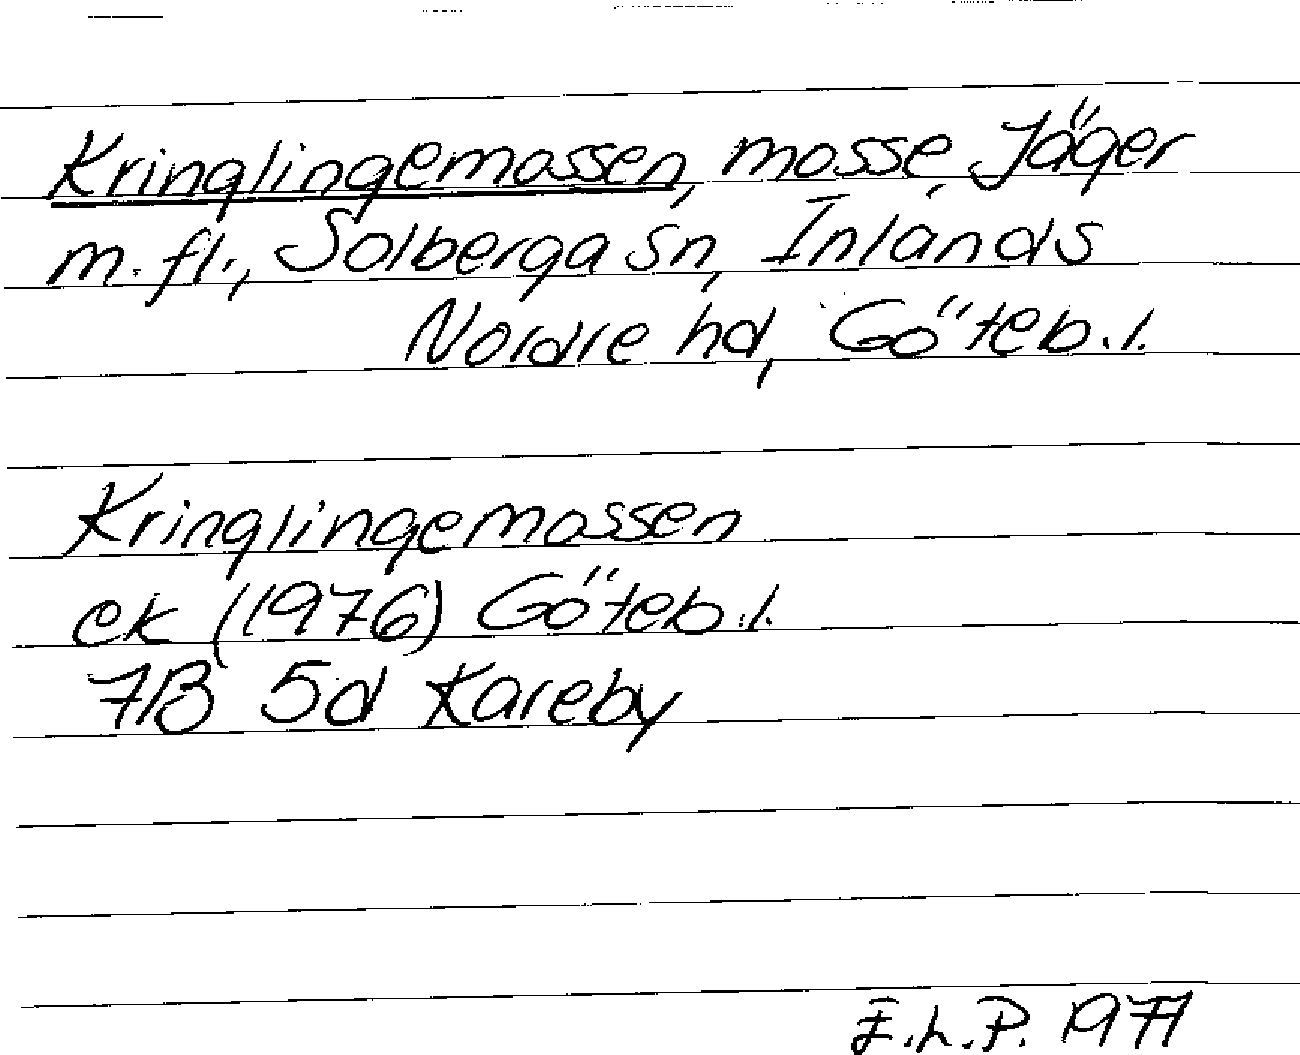 Kringlingemossen, mosse, Jäger
m.fl., Solberga sn, Inlands
Nordre hd, Göteb.l.
Kringlingemossen
ek (1976) Göteb.l.
7B 5d Kareby
E.L.P. 1977